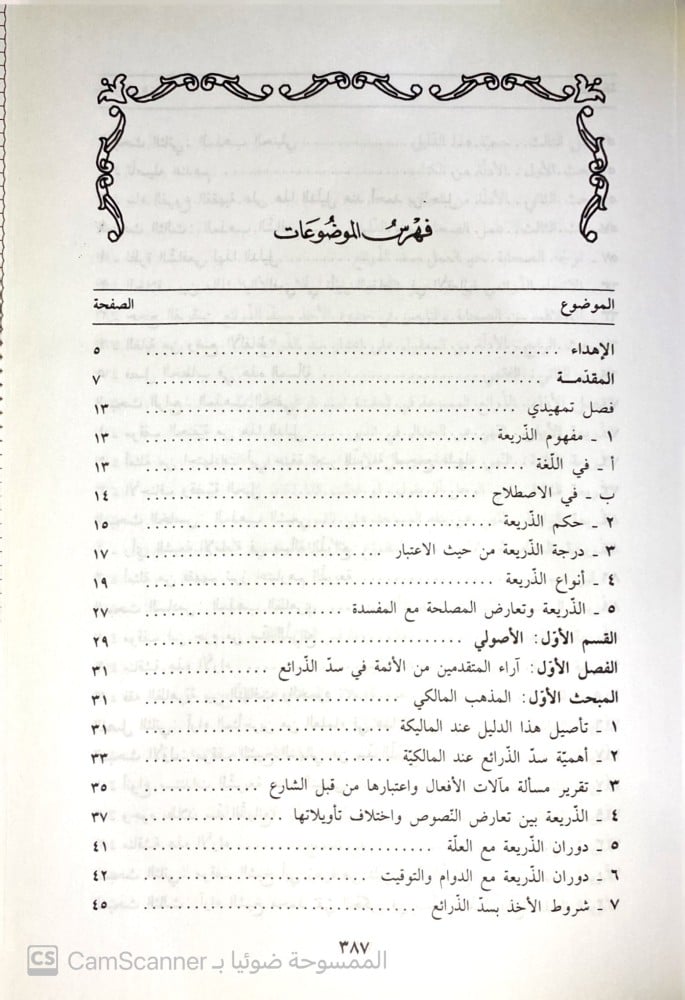 فهرس الموضوعات
الموضوع الصفحة
الإهداء ........ ٥
المقدّمـة ........ ٧
فصل تمهيدي ........ ١٣
١ ـ مفهوم الذّريعة ........ ١٣
أ ـ في اللّغة ........ ١٣
ب ـ في الاصطلاح ........ ١٤
٢ ـ حكم الذّريعة ........ ١٥
٣ ـ درجة الذّريعة من حيث الاعتبار ........ ١٧
٤ ـ أنواع الذّريعة ........ ١٩
٥ ـ الذّريعة وتعارض المصلحة مع المفسدة ........ ٢٧
القسم الأوّل: الأصولي ........ ٢٩
الفصل الأوّل: آراء المتقدمين من الأئمة في سدّ الذّرائع ........ ٣١
المبحث الأوّل: المذهب المالكي ........ ٣١
١ ـ تأصيل هذا الدليل عند الماليكة ........ ٣١
٢ ـ أهميّة سدّ الذّرائع عند المالكيّة ........ ٣٣
٣ ـ تقرير مسألة مآلات الأفعال واعتبارها من قبل الشارع ........ ٣٥
٤ ـ الذّريعة بين تعارض النّصوص واختلاف تأويلاتها ........ ٣٧
٥ ـ دوران الذّريعة مع العلّة ........ ٤١
٦ ـ دوران الذّريعة مع الدوام والتوقيت ........ ٤٢
٧ ـ شروط الأخذ بسدّ الذّرائع ........ ٤٥
٣٨٧
الممسوحة ضوئيا بـ CamScanner
CS